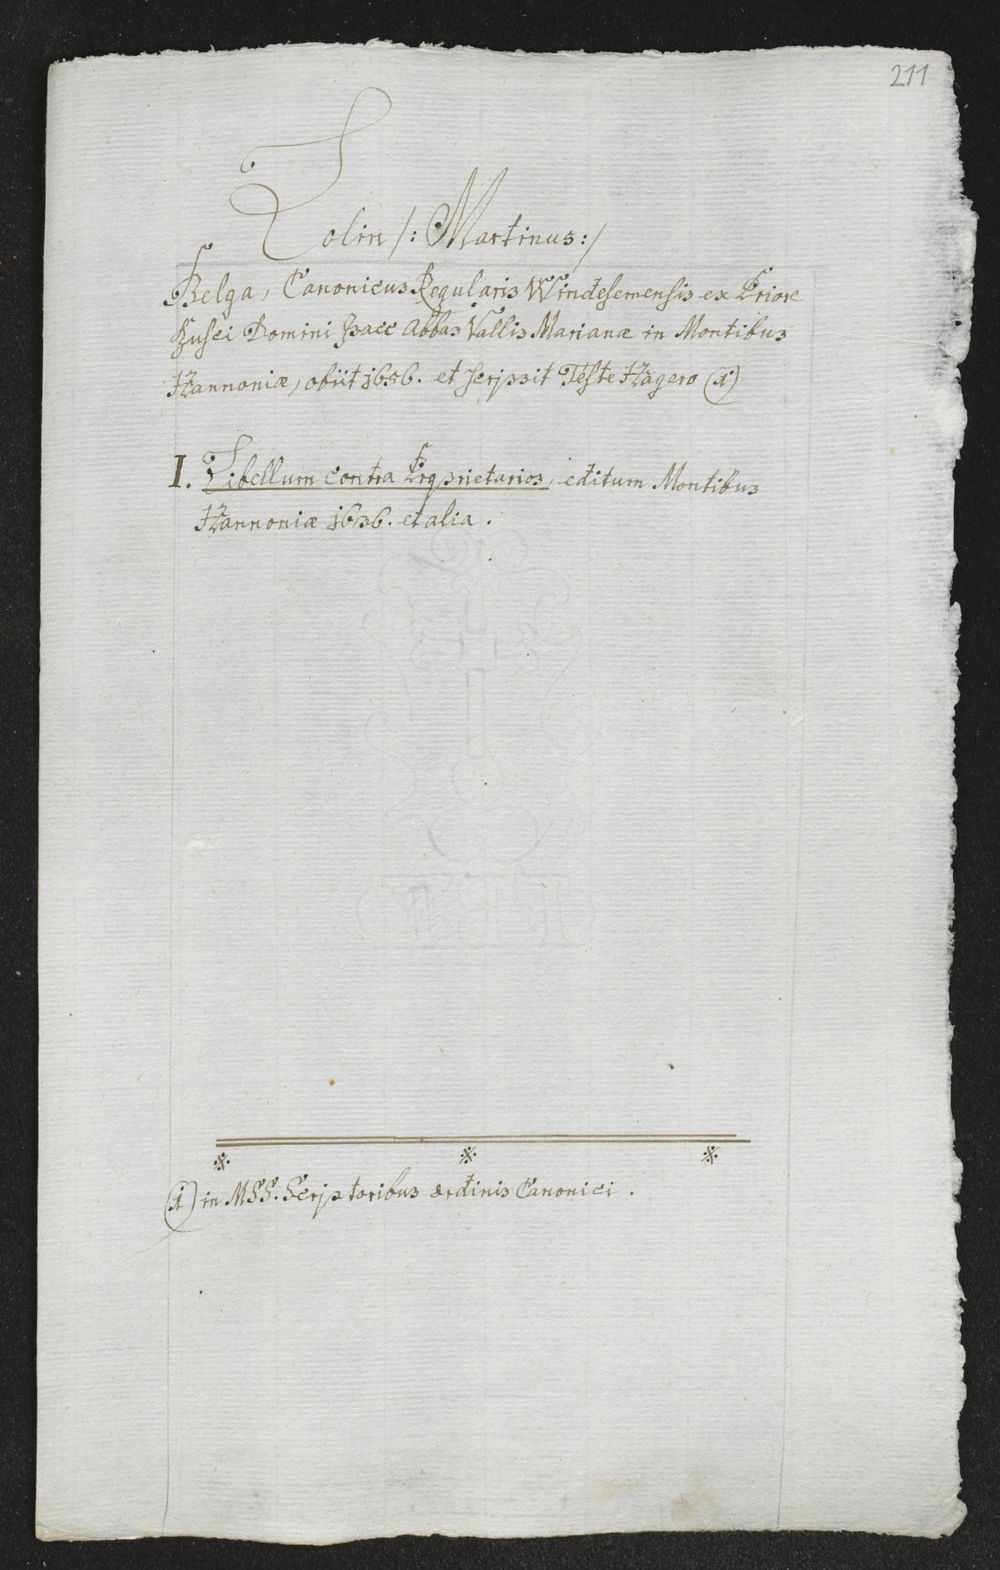 211
Colin /: Martinus :/
Belga, Canonicus Regularis Windesemensis ex Priore
Domini Isacc Abbas Vallis Marianæ in Montibus
Hannoniæ, obiit 1656. et scripsit Teste Hagero (1)
I. Libellum contra Proprietarios, editum Montibus
Hannoniæ 1636. et alia.
(1) in MSS. Scriptoribus ordinis Canonici.